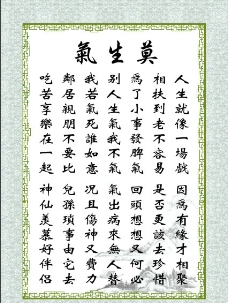 莫生氣
人生就像一場戲 因為有緣才相聚
相扶到老不容易 是否更該去珍惜
為了小事發脾氣 回頭想想又何必
別人生氣我不氣 氣出病來無人替
我若氣死誰如意 況且傷神又費力
鄰居親朋不要比 兒孫瑣事由它去
吃苦享樂在一起 神仙羨慕好伴侶